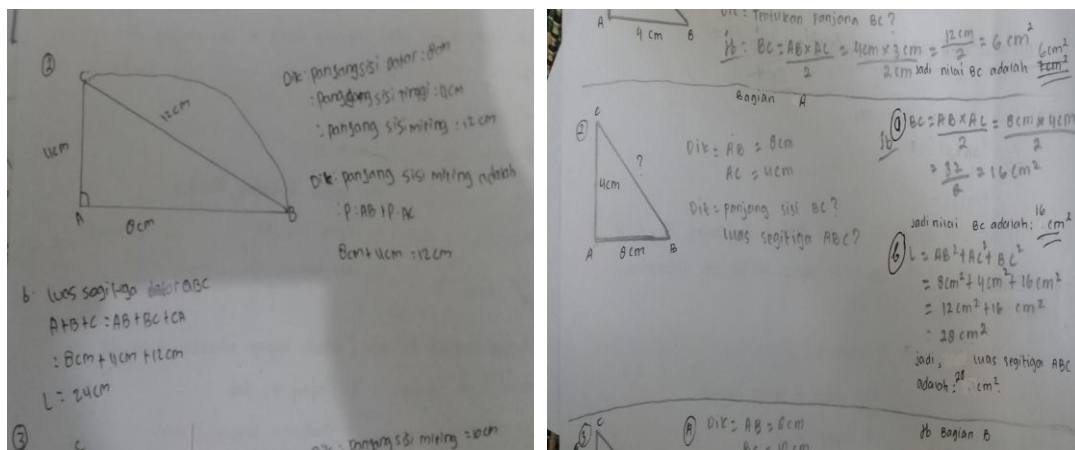 ②
C
12cm
4cm
A
8cm
B
Dik: panjang sisi datar: 8cm
: panjang sisi tinggi: 4cm
: panjang sisi miring: 12cm
Dik: panjang sisi miring adalah
: P: AB + P. AC
8cm + 4cm = 12cm
b. luas segitiga datar ABC
A+B+C = AB+BC+CA
= 8cm + 4cm + 12cm
L = 24cm
③
C
Dik: panjang sisi miring = 10cm
A
4 cm
B
Dit: Tentukan Panjang BC?
jb: BC = AB×AC / 2 = 4cm × 3cm / 2cm = 12cm / 2 = 6 cm²
jadi nilai BC adalah 6cm²
Bagian A
②
C
4cm
?
A
8cm
B
Dik = AB = 8cm
AC = 4cm
Dit = panjang sisi BC?
luas segitiga ABC?
Jb
ⓐ BC = AB×AC / 2 = 8cm × 4cm / 2
= 32 / 2 = 16 cm²
Jadi nilai BC adalah: 16 cm²
ⓑ L = AB² + AC² + BC²
= 8cm² + 4cm² + 16cm²
= 12cm² + 16 cm²
= 28cm²
jadi, luas segitiga ABC
adalah: 28 cm².
③
C
Ⓐ Dik = AB = 6cm
BC = 10cm
Jb Bagian B